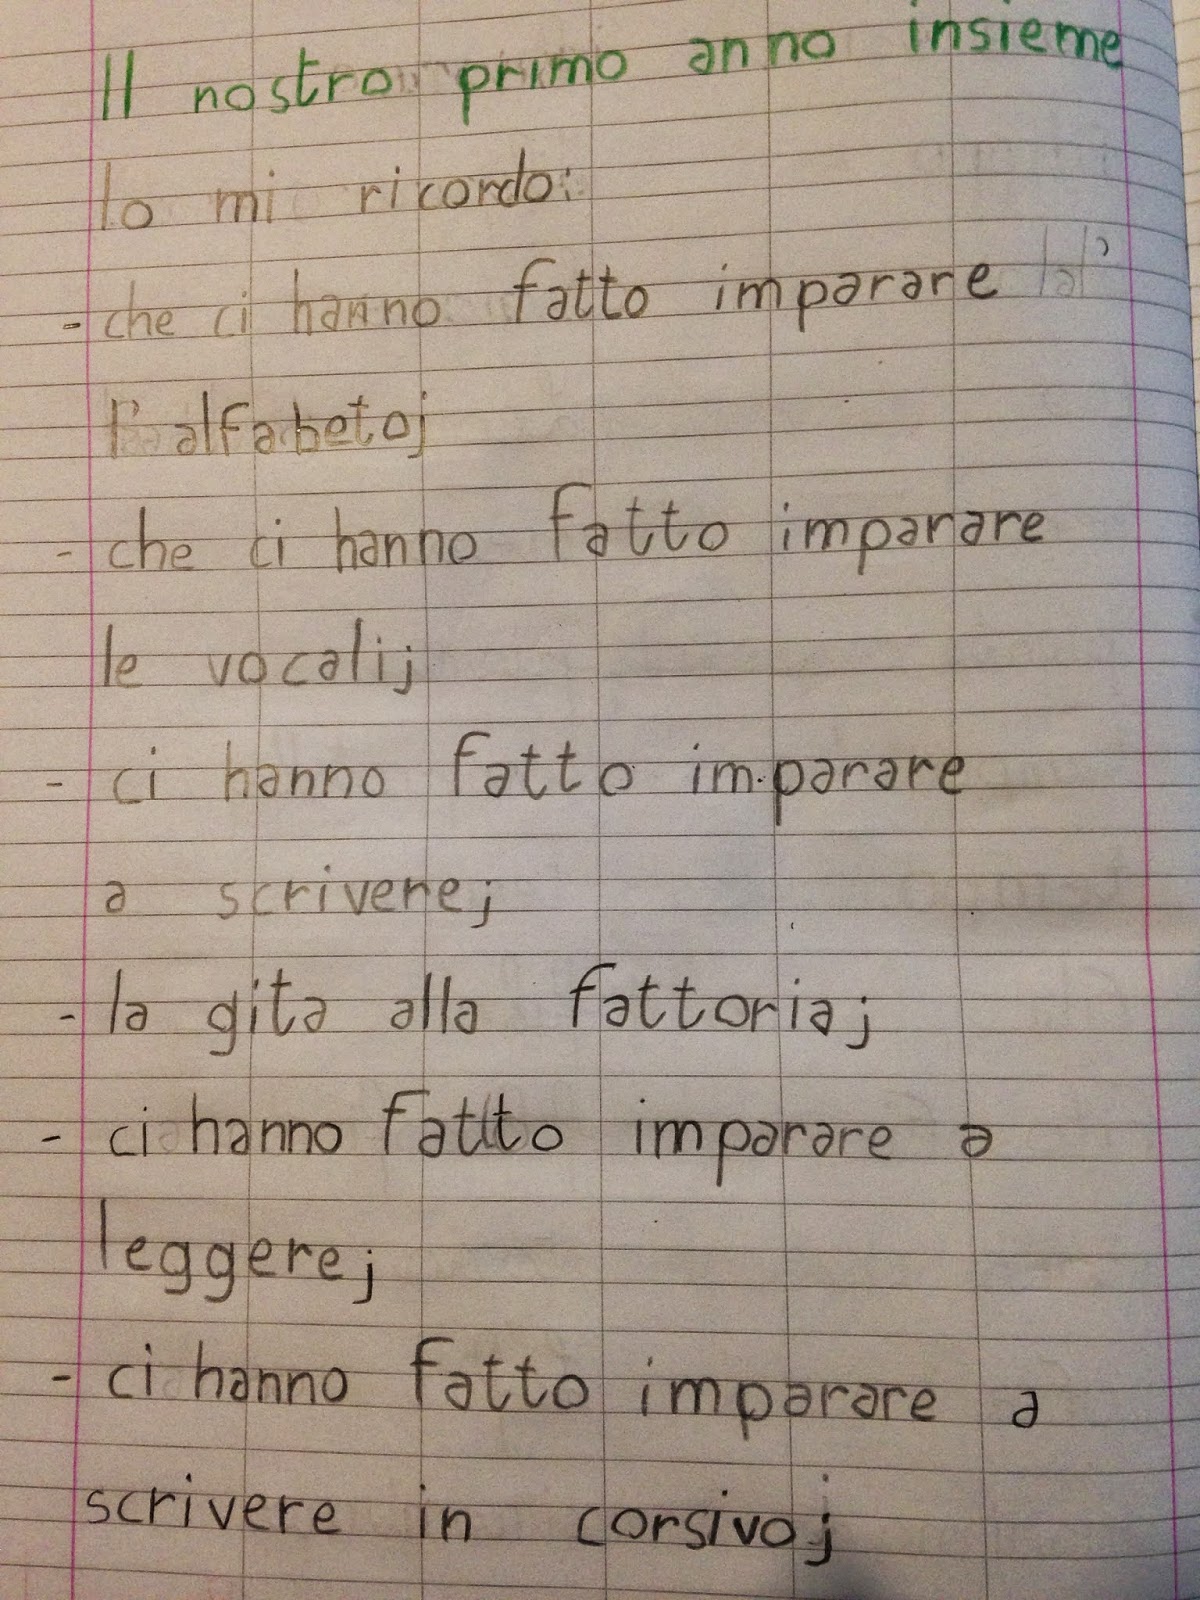 Il nostro primo anno insieme
Io mi ricordo:
- che ci hanno fatto imparare
l'alfabeto;
- che ci hanno fatto imparare
le vocali;
- ci hanno fatto imparare
a scrivere;
- la gita alla fattoria;
- ci hanno fatto imparare a
leggere;
- ci hanno fatto imparare a
scrivere in corsivo;